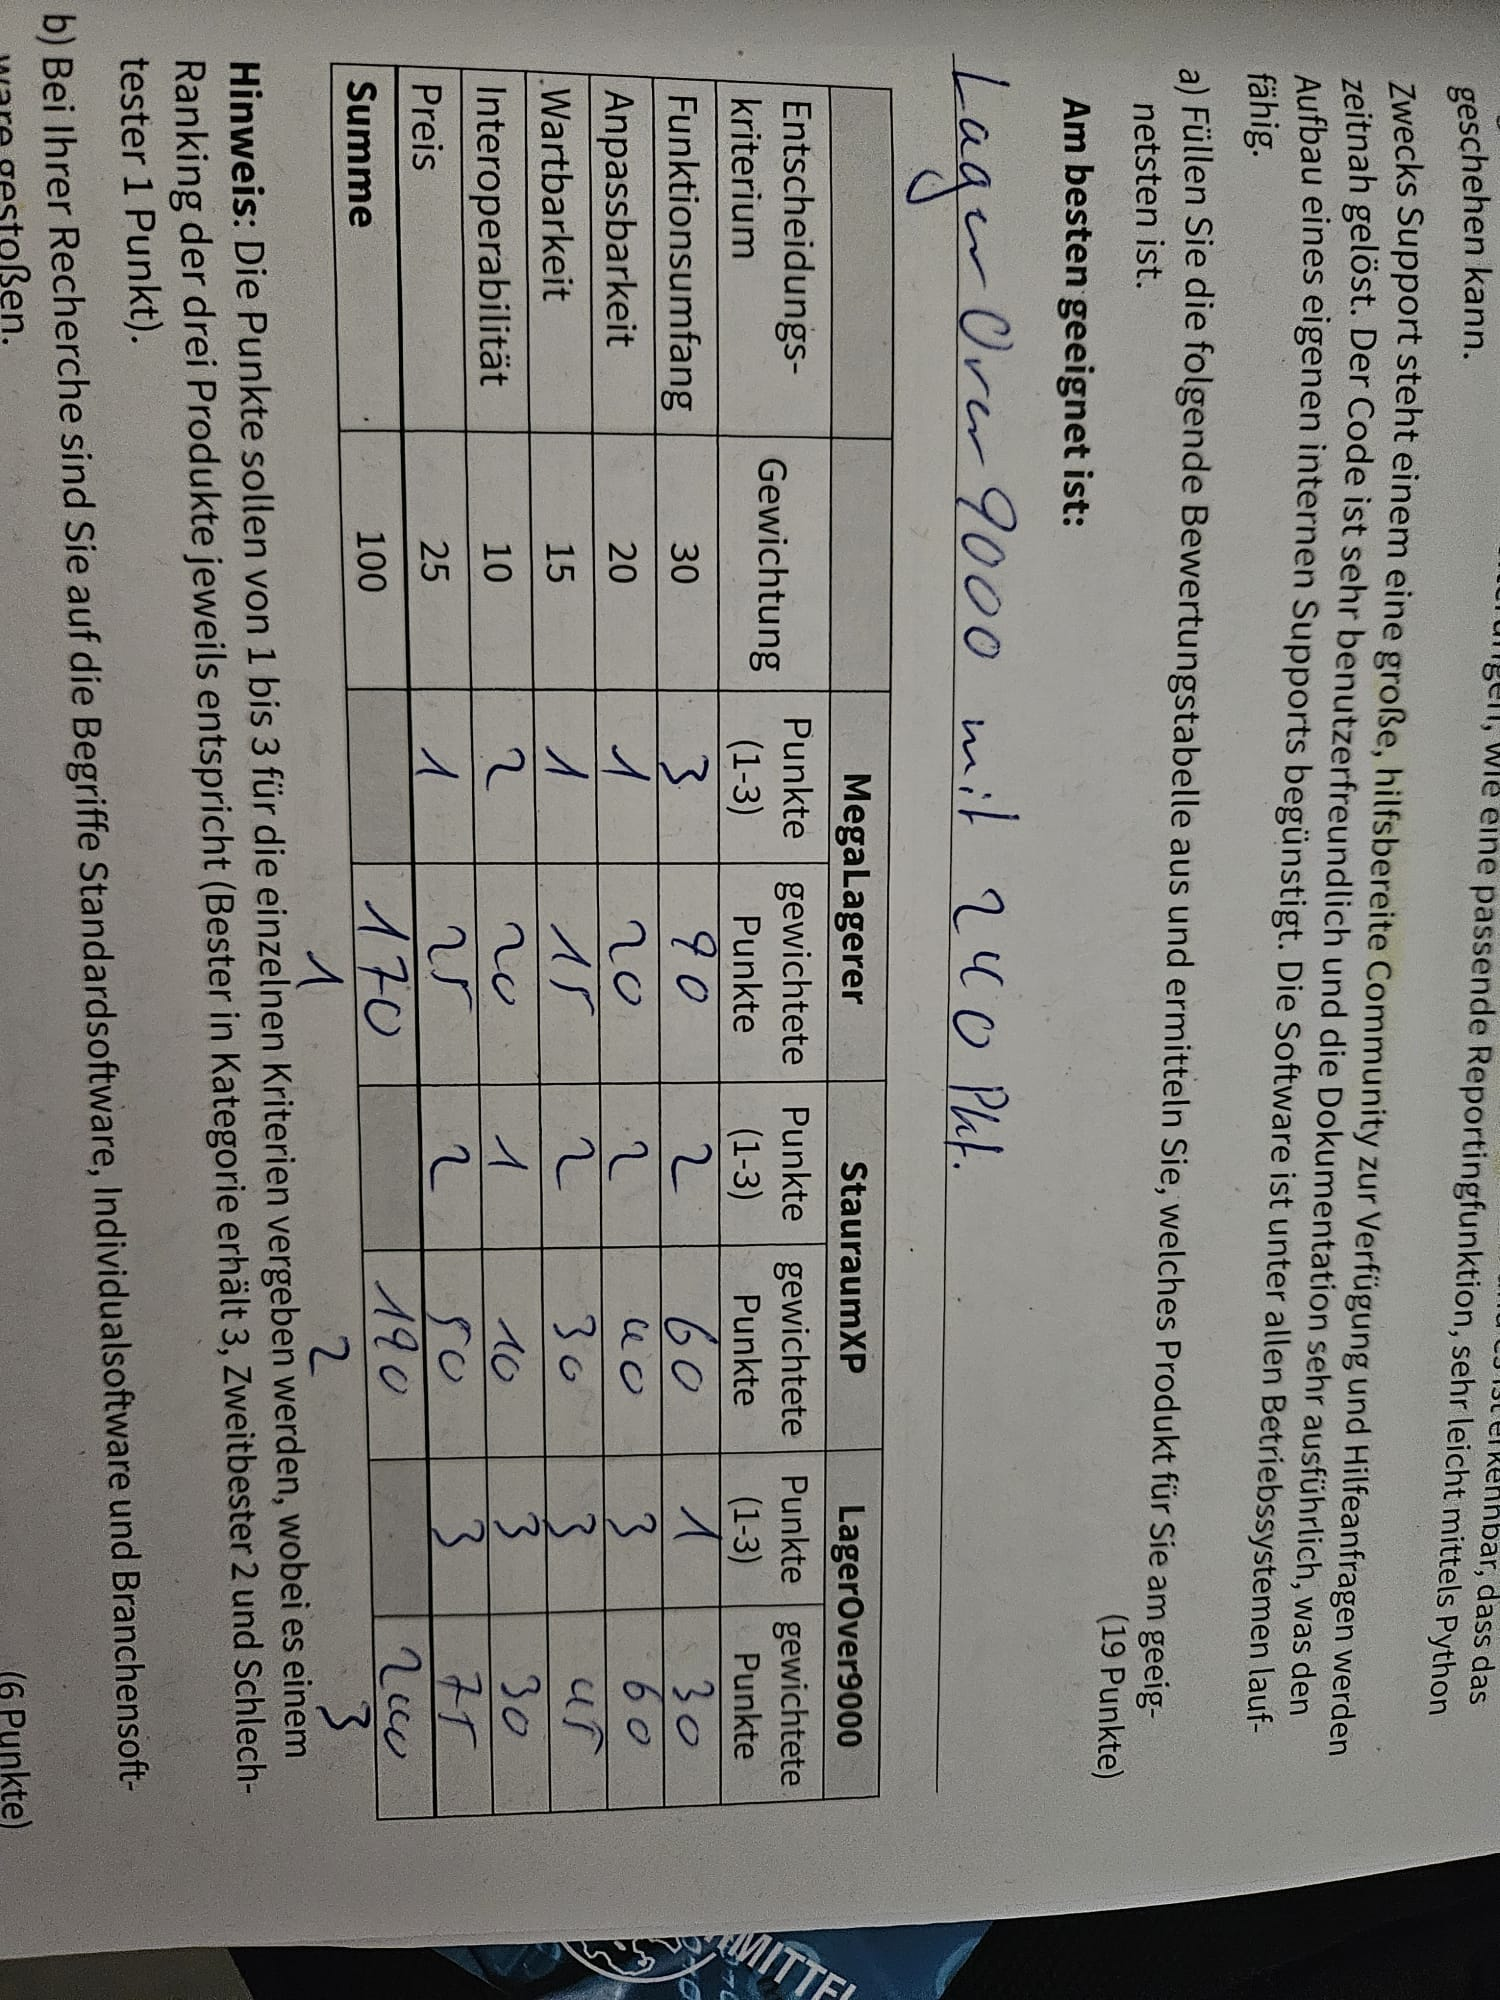 geschehen kann.
, wie eine passende Reportingfunktion, sehr leicht mittels Python
Zwecks Support steht einem eine große, hilfsbereite Community zur Verfügung und Hilfeanfragen werden
zeitnah gelöst. Der Code ist sehr benutzerfreundlich und die Dokumentation sehr ausführlich, was den
Aufbau eines eigenen internen Supports begünstigt. Die Software ist unter allen Betriebssystemen lauf-
fähig.
a) Füllen Sie die folgende Bewertungstabelle aus und ermitteln Sie, welches Produkt für Sie am geeig-
netsten ist.
(19 Punkte)
Am besten geeignet ist:
LagerOver 9000 mit 240 Pkt.
MegaLagerer StauraumXP LagerOver9000
Entscheidungs-
kriterium Gewichtung Punkte (1-3) gewichtete Punkte Punkte (1-3) gewichtete Punkte Punkte (1-3) gewichtete Punkte
Funktionsumfang 30 3 90 2 60 1 30
Anpassbarkeit 20 1 20 2 40 3 60
Wartbarkeit 15 1 15 2 30 3 45
Interoperabilität 10 2 20 1 10 3 30
Preis 25 1 25 2 50 3 75
Summe 100 170 190 240
1 2 3
Hinweis: Die Punkte sollen von 1 bis 3 für die einzelnen Kriterien vergeben werden, wobei es einem
Ranking der drei Produkte jeweils entspricht (Bester in Kategorie erhält 3, Zweitbester 2 und Schlech-
tester 1 Punkt).
b) Bei Ihrer Recherche sind Sie auf die Begriffe Standardsoftware, Individualsoftware und Branchensoft-
ware gestoßen.
(6 Punkte)